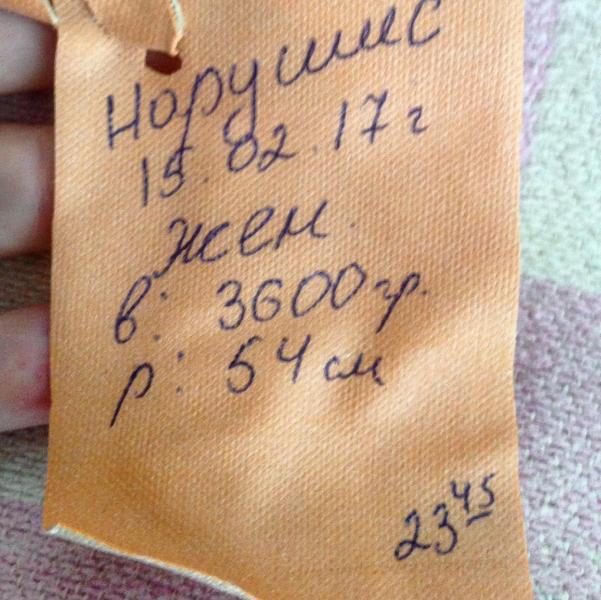 Норушис
15.02.17г
жен.
в: 3600 гр.
р: 54 см
23 45